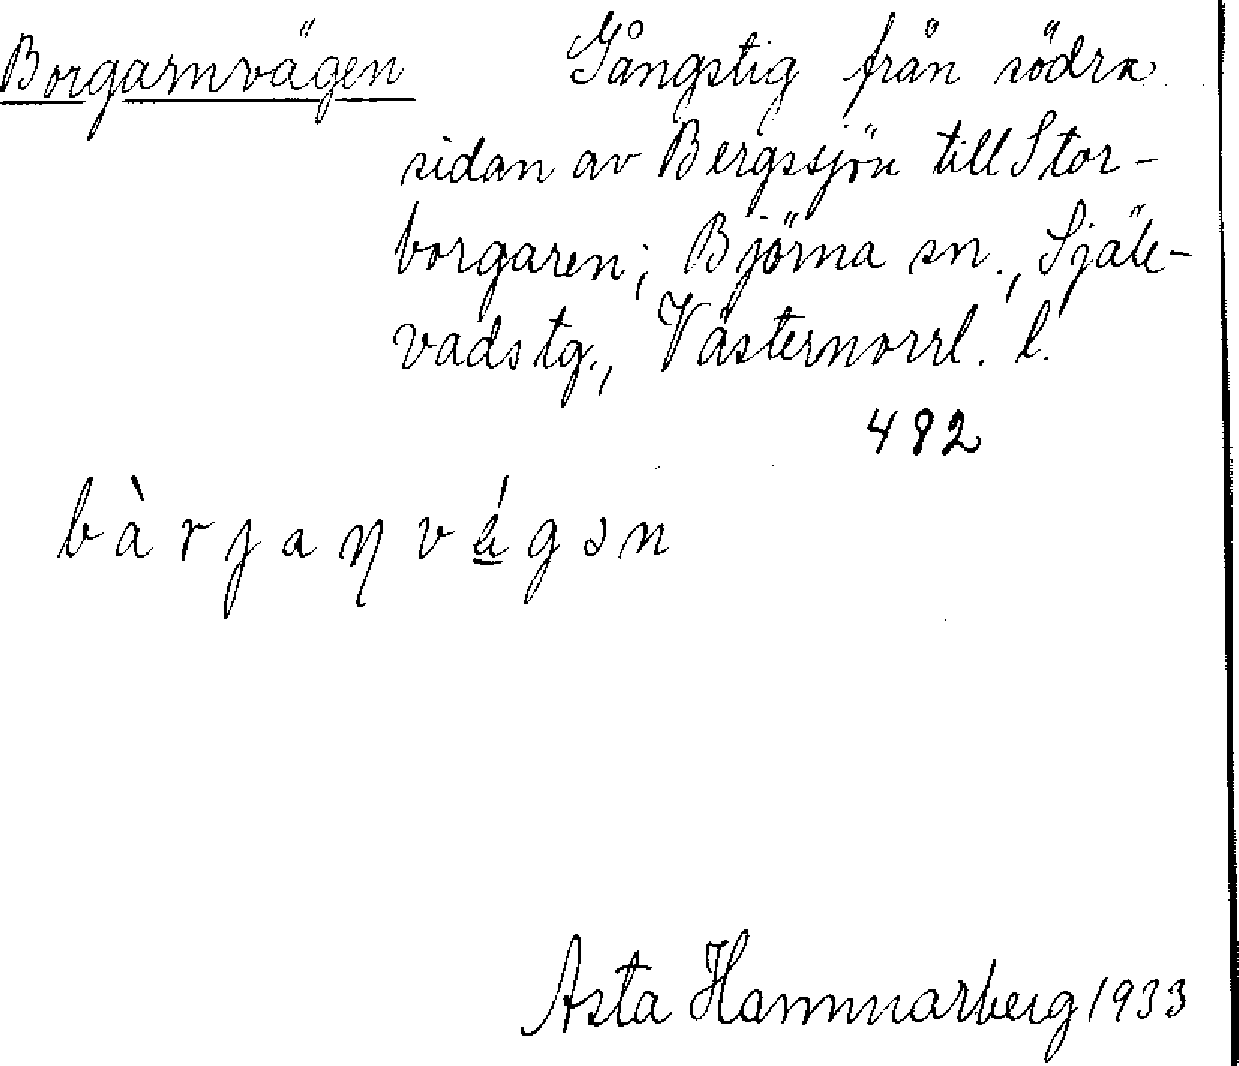 Borgarnvägen Gångstig från södra
sidan av Bergssjön till Stor-
borgaren; Björna sn., Själe-
vads tg., Västernorrl. l.
482
bàrjaŋvǵgən
Asta Hammarberg 1933